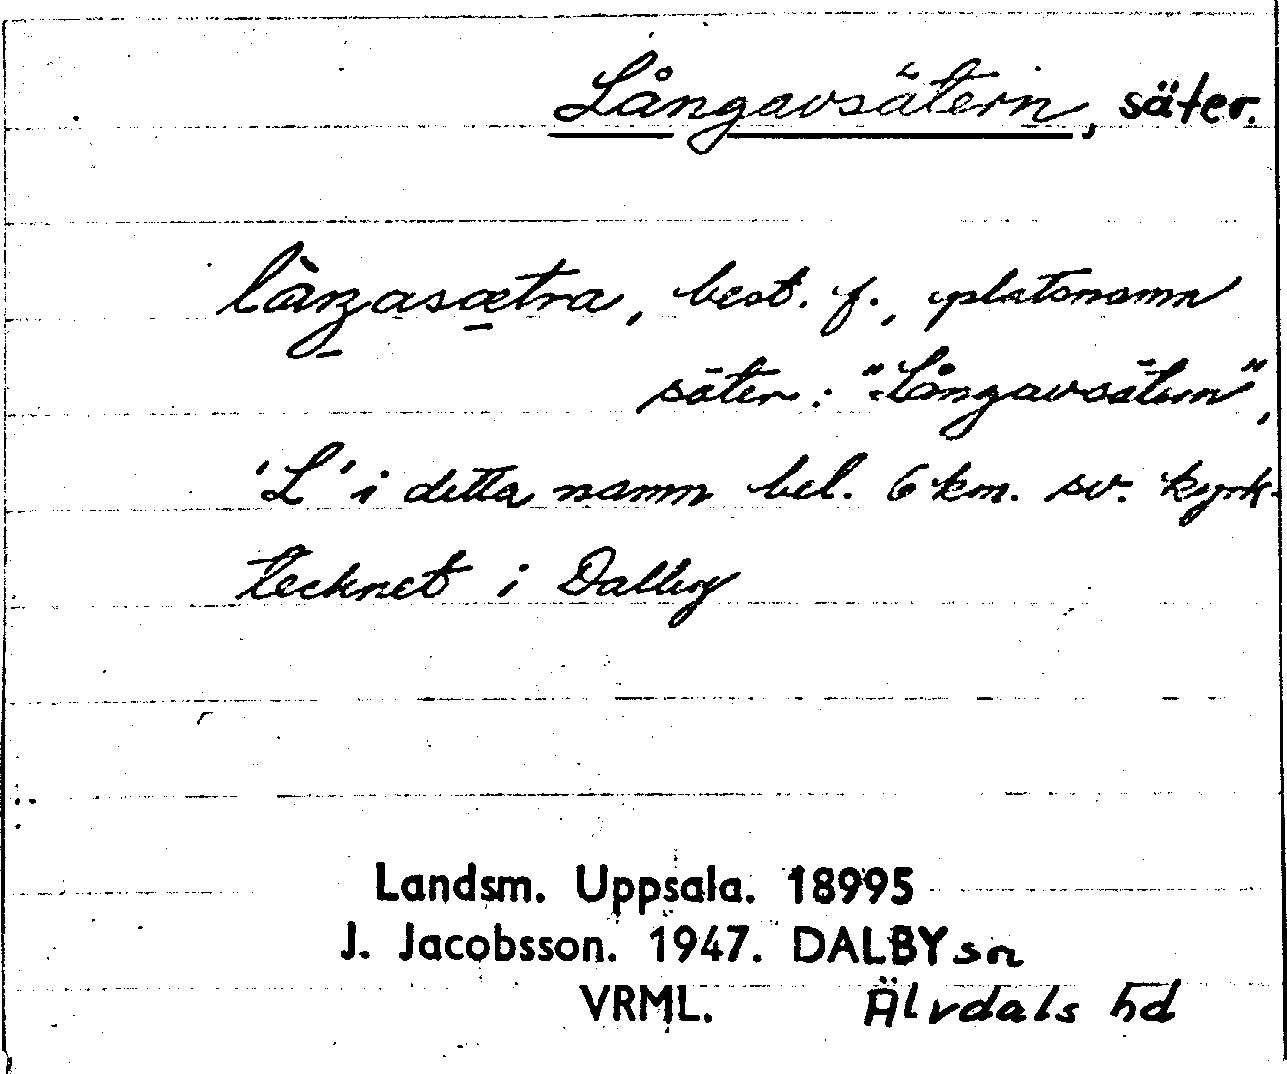 Långavsätern, säter.
låŋasætra, best. f., platsnamn
säter: "Långavsätern",
'L' i detta namn bel. 6 km. sv. kyrk-
tecknet i Dalby
Landsm. Uppsala. 18995
J. Jacobsson. 1947. DALBY sn
VRML. Älvdals hd